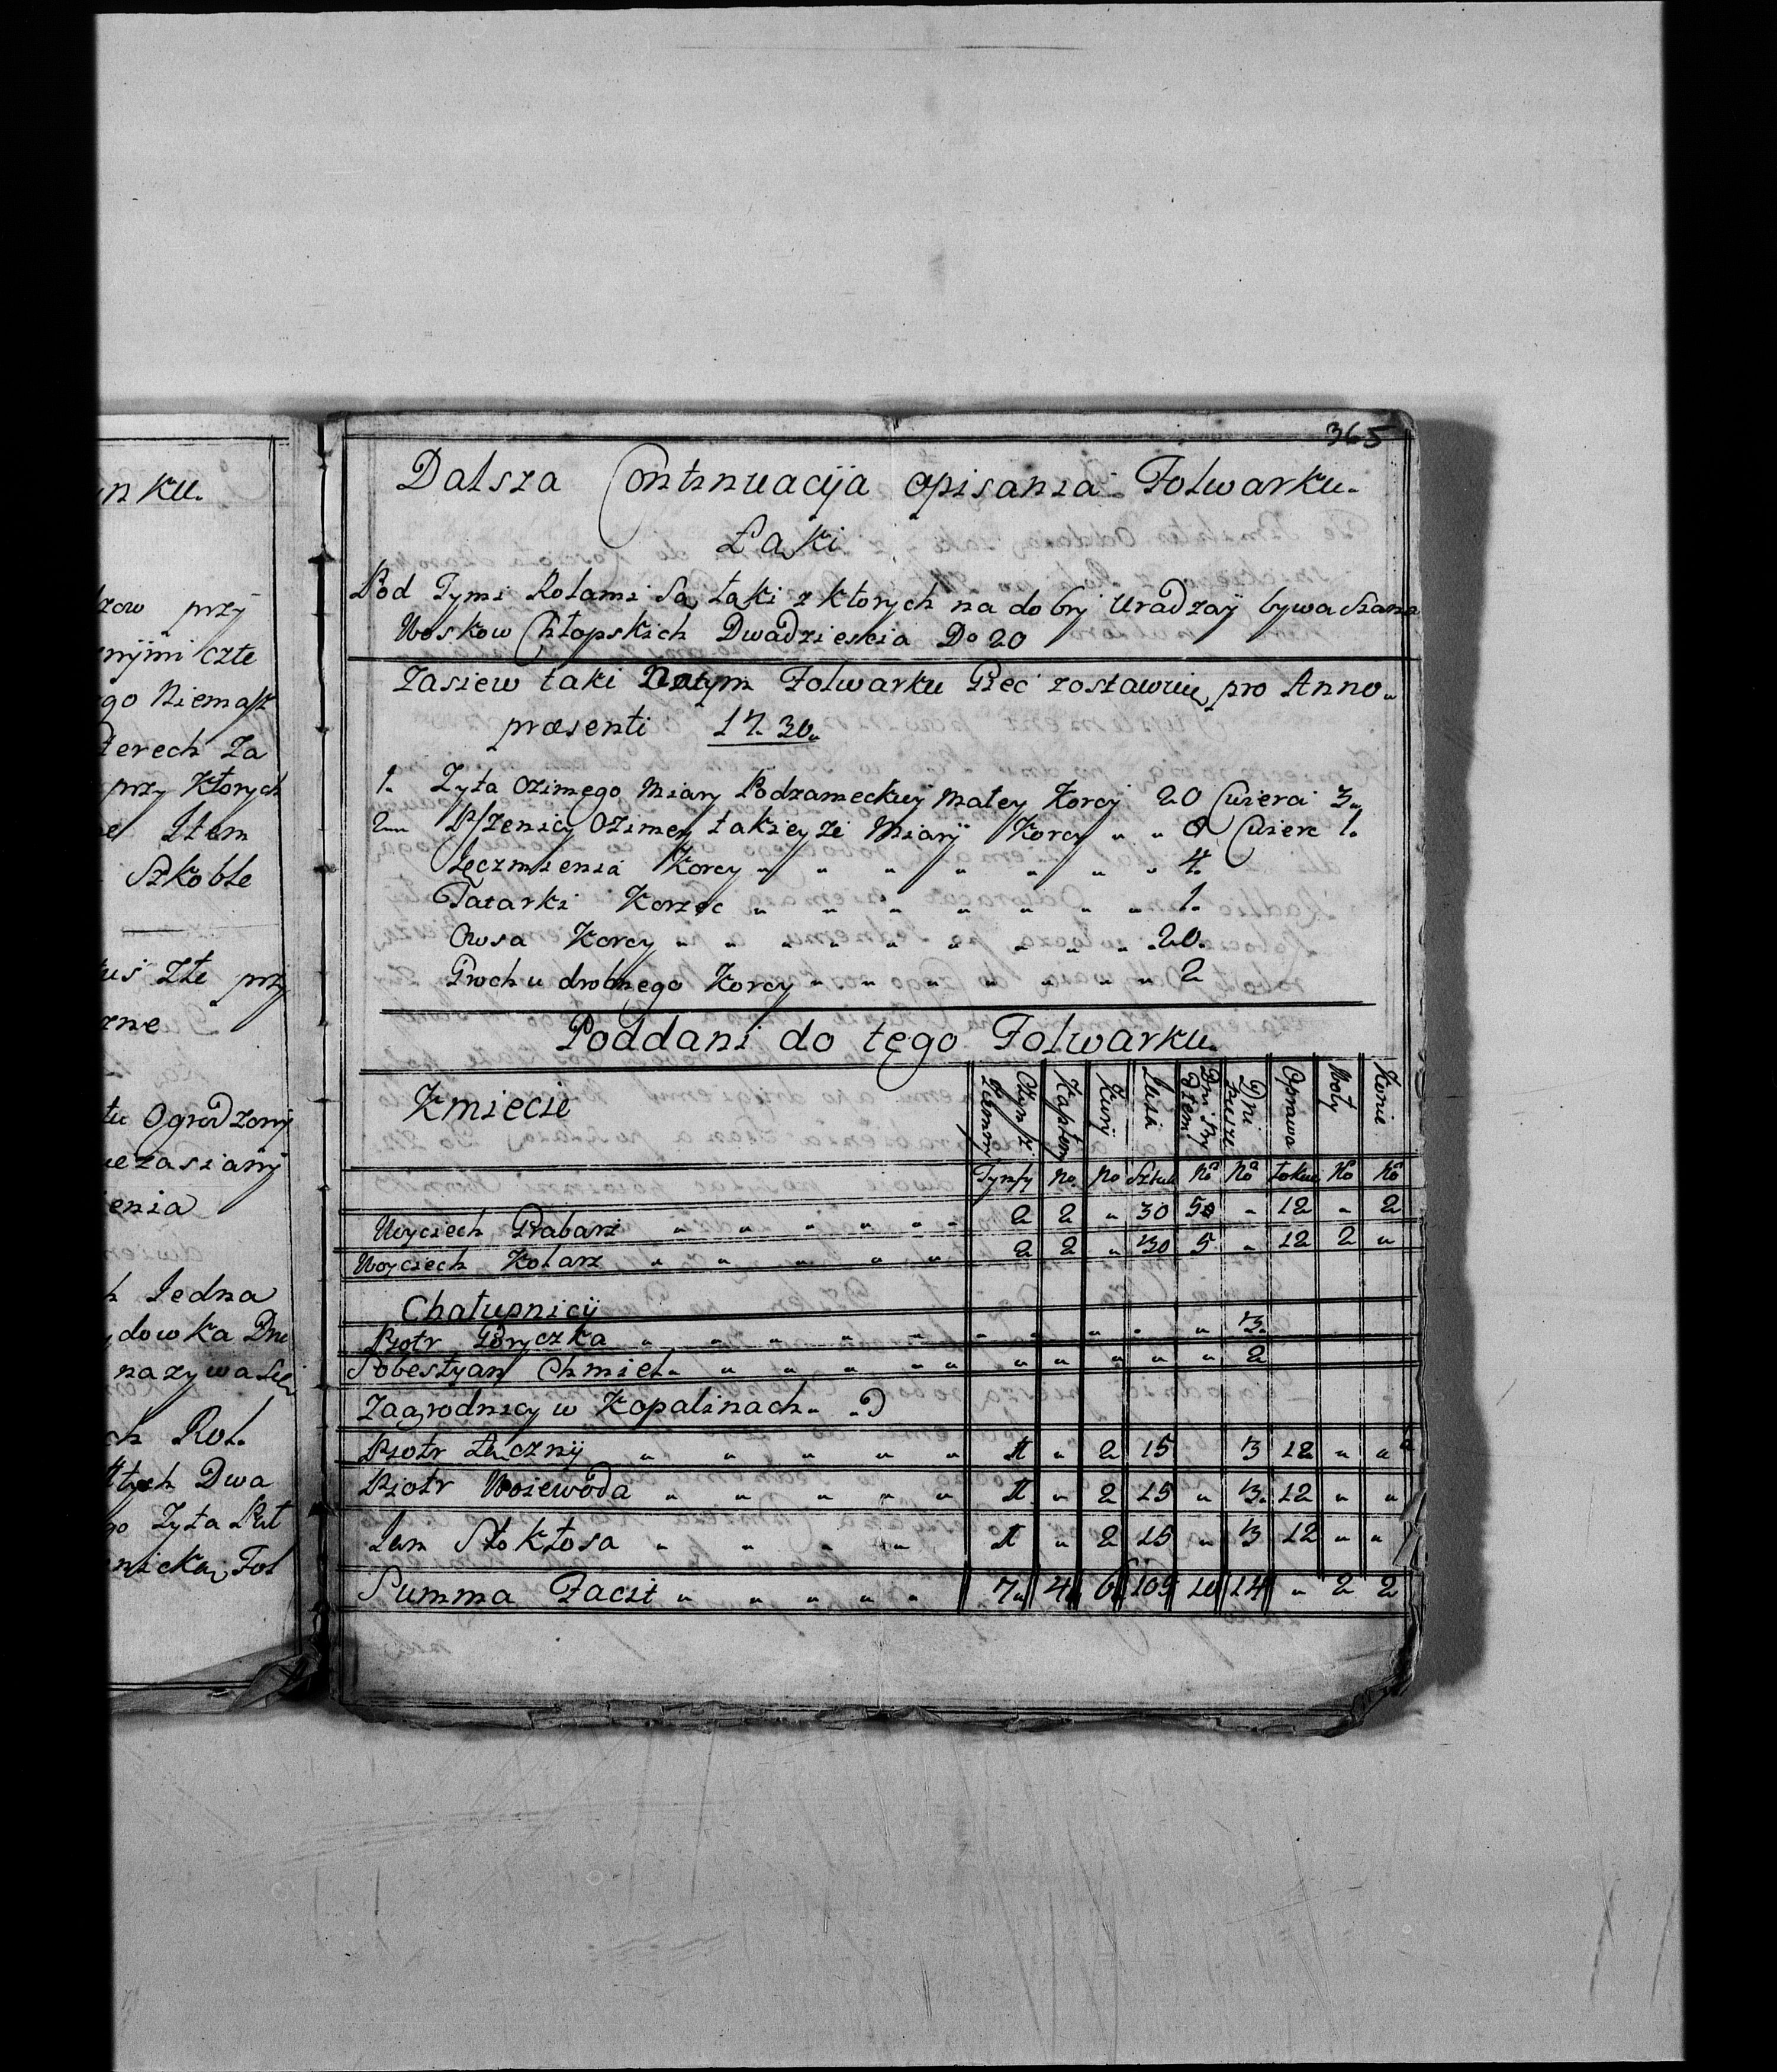 nku.
zow przy
nymi czte
go Niemasz
terech Za
przy ktorych
Item
Szkoble
Zte przy
zne
tu Ogrodzony
zasiany
enia
Jedna
dowka
nazywa Się
ch Rol.
Dwa
Zyta
nicka Fol
365
Dalsza Continuacyja opisania Folwarku.
Łąki
Pod Tymi Rolami Są Łąki z ktorych na dobry Uradzay bywa Siana
Woskow Chłopskich Dwadziescia Do 20
Zasiew taki Natym Folwarku pro Anno
præsenti 1730.
1. Zyta Ozimego Miary Podzameckiey Małey Korcy 20 Cwierci 3.
2 Pszenicy Ozimey takieyze Miary Korcy „ „ 8 Cwierc 1.
Jęczmienia Korcy „ „ „ „ „ „ „ 4.
Tatarki Korzec „ „ „ „ „ „ „ 1.
Owsa Korcy „ „ „ „ „ „ „ „ 20.
Grochu drobnego Korcy „ „ „ „ „ „ „ 2
Poddani do tego Folwarku.
Kmiecie Czynsz Ziemny Kapłony Kury Dni Piesze Oprawa Woły Konie
Tynfy No No Sztuk No No No No
Woyciech Grabarz „ „ „ „ „ „ 2 2 „ 30 5 „ 12 „ 2
Woyciech Kolarz „ „ „ „ „ 2 2 „ 30 5 „ 12 2 „
Chałupnicy
Piotr Goryczka „ „ „ „ „ „ „ „ „ „ 3.
Sobestyan Chmiel „ „ „ „ „ „ „ „ „ „ „ 2
Zagrodnicy w Kopalinach
Piotr Łączny „ „ „ „ „ 1 „ 2 15 3 12 „ „
Piotr Woiewoda „ „ „ „ „ 1 „ 2 15 „ 3. 12 „ „
Jan Stokłosa „ „ „ „ 1 „ 2 15 „ 3 12 „ „
Summa Facit „ „ „ „ „ 7 4 6 105 10 14 „ 2 2